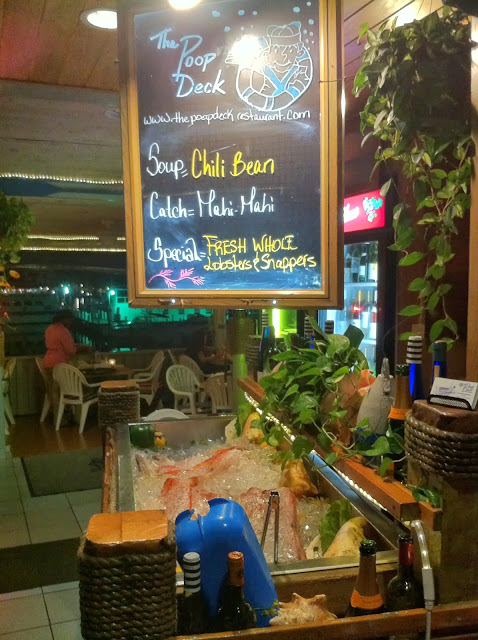 The
Poop
Deck
www.thepoopdeckrestaurant.com
Soup= Chili Bean
Catch= Mahi-Mahi
Special= FRESH WHOLE
Lobsters & Snappers